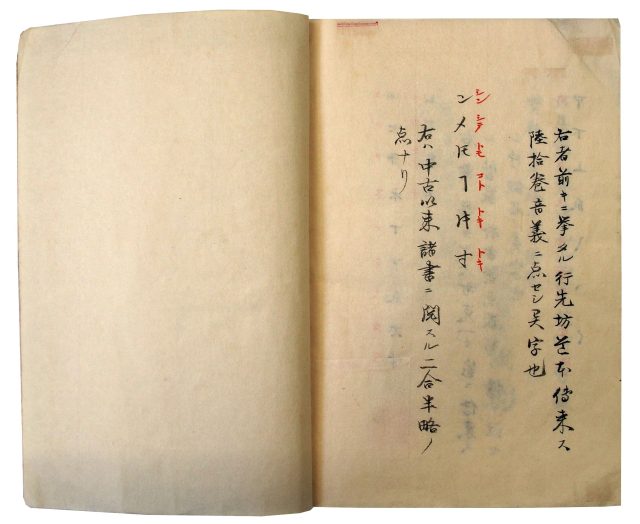 右者前キニ挙タル行先坊
傳来ス
陸拾巻音義ニ点セシ異字也
シン シテ トモ コト トキ トキ
ン メ 𪜈 ヿ 寸
右ハ中古以来諸書ニ関スル二合半略ノ
点ナリ